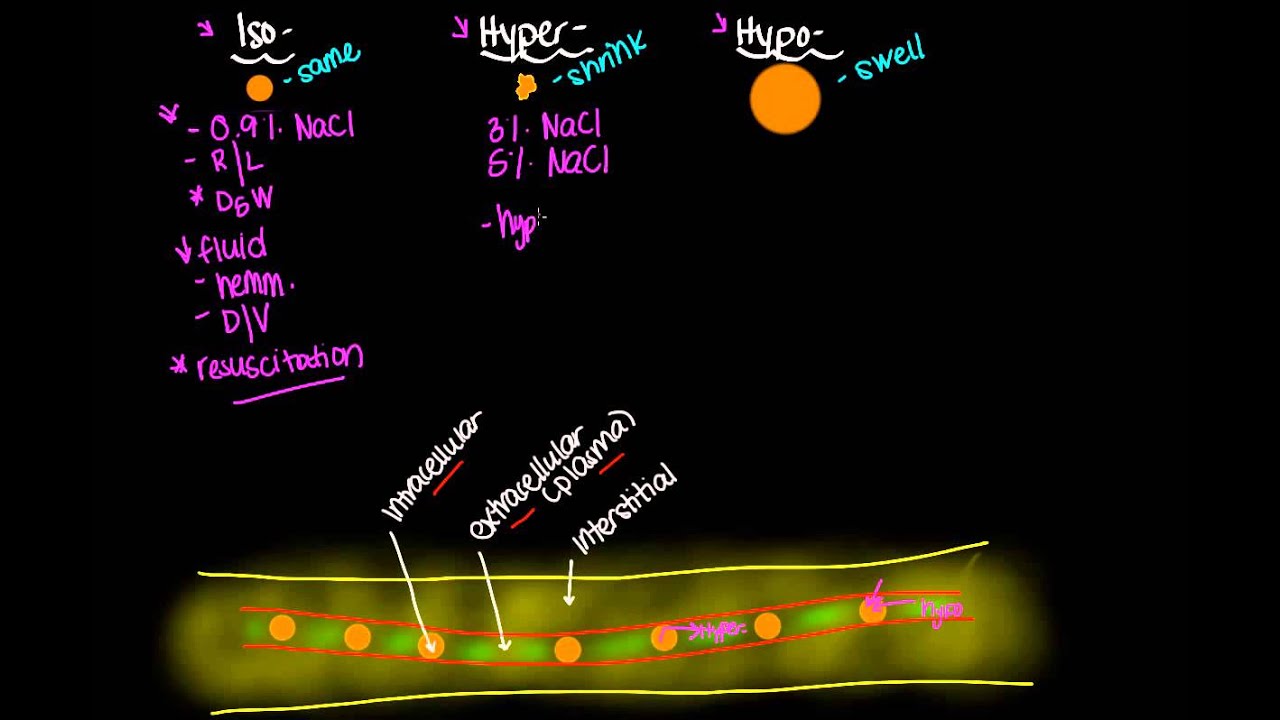 Iso-
- same
- 0.9%. NaCl
- R/L
* D5W
↓ fluid
- hemm.
- D/V
* resuscitation
Hyper-
- shrink
3%. NaCl
5%. NaCl
- hyp
Hypo-
- swell
Intracellular
extracellular
(plasma)
Interstitial
Hyper-
Hypo